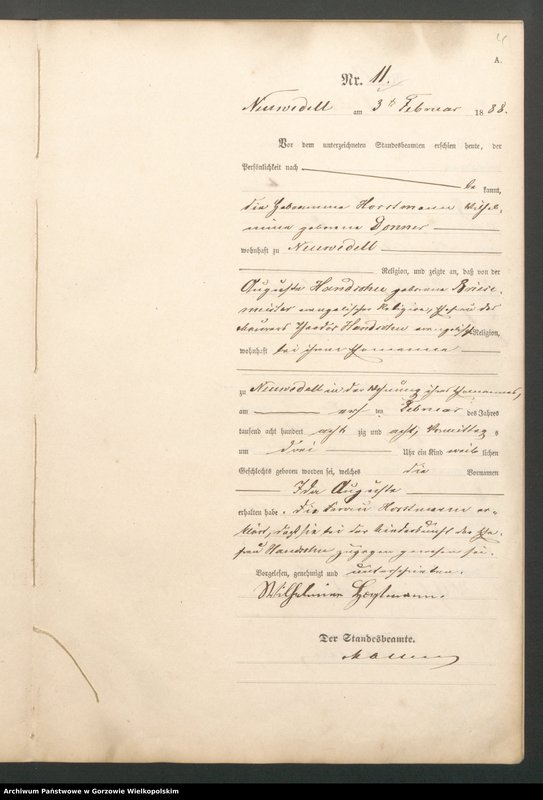 4
A.
Nr. 11.
Neuwedell am 3ten Februar 1888.
Vor dem unterzeichneten Standesbeamten erschien heute, der
Persönlichkeit nach
be kannt,
die Hebamme Horstmann Wilhel-
mine geborene Donner
wohnhaft zu Neuwedell
Religion, und zeigte an, daß von der
Auguste Handschu geborene Briese-
meister evangelischer Religion, Ehefrau des
Maurers Theodor Handschu evangelisch Religion,
wohnhaft bei ihrem Ehemanne
zu Neuwedell in der Wohnung ihres Ehemannes,
am ersten Februar des Jahres
tausend acht hundert acht zig und acht, Vormittag s
um drei Uhr ein Kind weib lichen
Geschlechts geboren worden sei, welches die Vornamen
Ida Auguste
erhalten habe. Die Frau Horstmann er-
klärt, daß sie bei der Niederkunft der Ehe-
frau Handschu zugegen gewesen sei.
Vorgelesen, genehmigt und unterschrieben.
Wilhelmine Horstmann.
Der Standesbeamte.
Archiwum Państwowe w Gorzowie Wielkopolskim